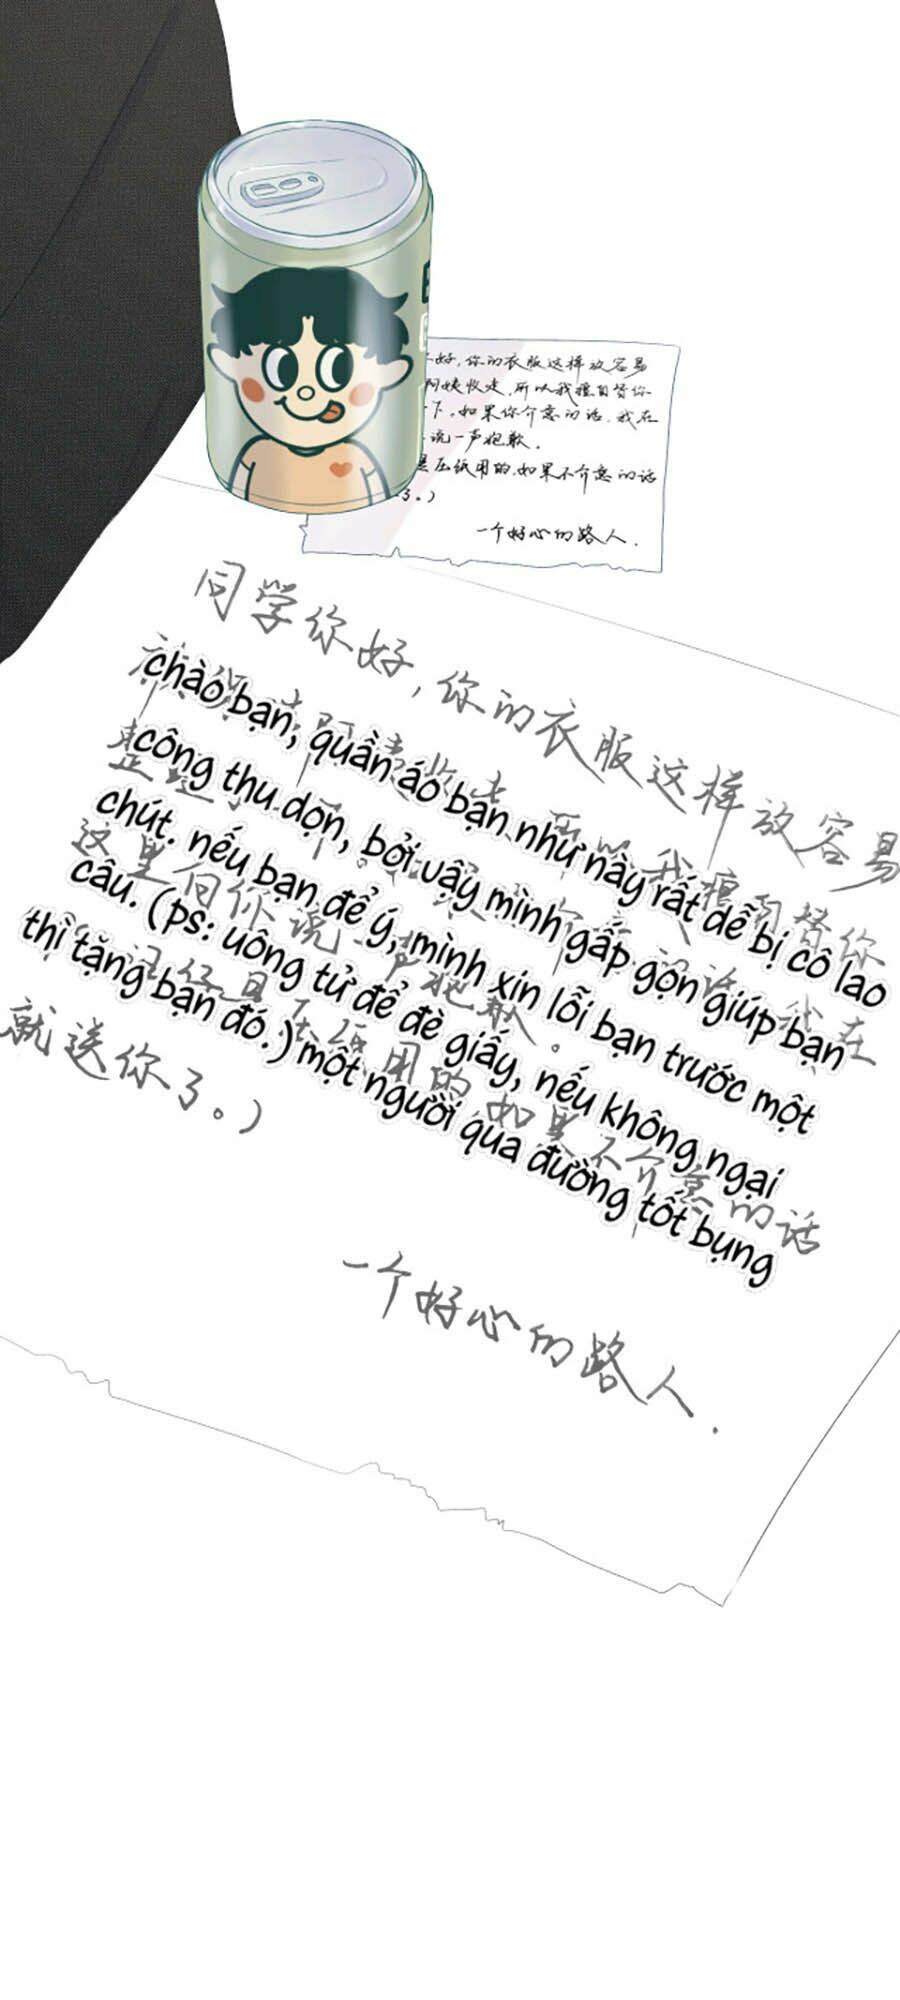 你好,你的衣服这样放容易
阿姨收走,所以我擅自替你
一下。如果你介意的话,我在
说一声抱歉.
是压纸用的,如果不介意的话
了。)
一个好心的路人.
同学你好,你的衣服这样放容易
chào bạn, quần áo bạn như này rất dễ bị cô lao
công thu dọn, bởi vậy mình gấp gọn giúp bạn
chút. nếu bạn để ý, mình xin lỗi bạn trước một
câu. (ps: uông tử để đè giấy, nếu không ngại
thì tặng bạn đó.) một người qua đường tốt bụng
这里向你说一声抱歉。
用的,如果不介意的话
就送你了。)
一个好心的路人.